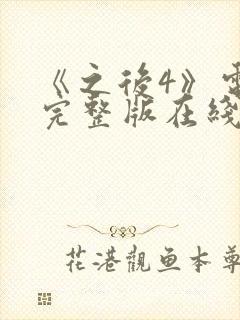 《之後4》電
完整版在綫
花港觀鱼本尊